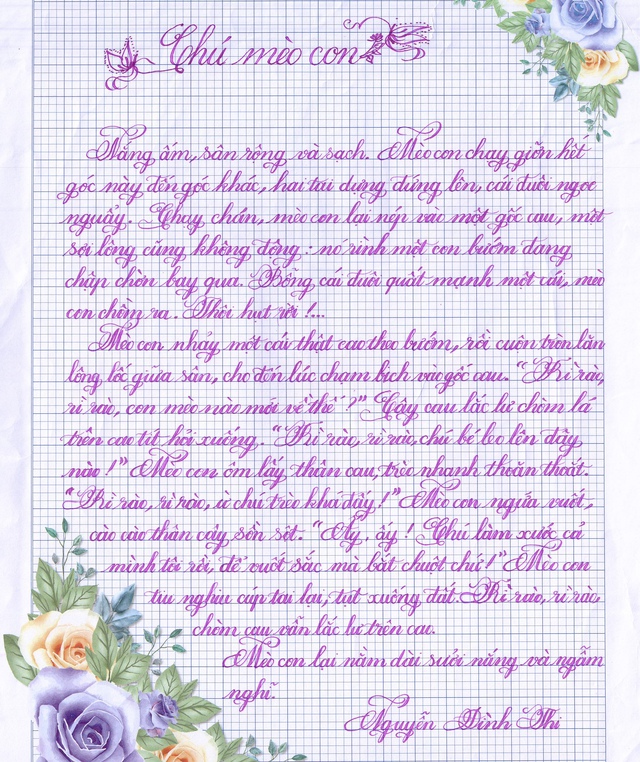 Chú mèo con
Nắng ấm, sân rộng và sạch. Mèo con chạy giỡn hết
góc này đến góc khác, hai tai dựng đứng lên, cái đuôi ngoe
nguẩy. Chạy chán, mèo con lại nép vào một gốc cau, một
sợi lông cũng không động : nó rình một con bướm đang
chập chờn bay qua. Bỗng cái đuôi quất mạnh một cái, mèo
con chồm ra. Thôi hụt rồi !...
Mèo con nhảy một cái thật cao theo bướm, rồi cuộn tròn lăn
lông lốc giữa sân, cho đến lúc chạm bịch vào gốc cau. "Rì rào,
rì rào, con mèo nào mới về thế ?" Cây cau lắc lư chòm lá
trên cao tít hỏi xuống. "Rì rào, rì rào, chú bé leo lên đây
nào !" Mèo con ôm lấy thân cau, trèo nhanh thoăn thoắt.
"Rì rào, rì rào, ù chú trèo khá đấy !" Mèo con ngứa vuốt,
cào cào thân cây, sồn sột. "Ấy, ấy ! Chú làm xước cả
mình tôi rồi, để vuốt sắc mà bắt chuột chứ !" Mèo con
tiu nghỉu cúp tai lại, tụt xuống đất. Rì rào, rì rào,
chòm cau vẫn lắc lư trên cao.
Mèo con lại nằm dài sưởi nắng và ngẫm
nghĩ.
Nguyễn Đình Thi